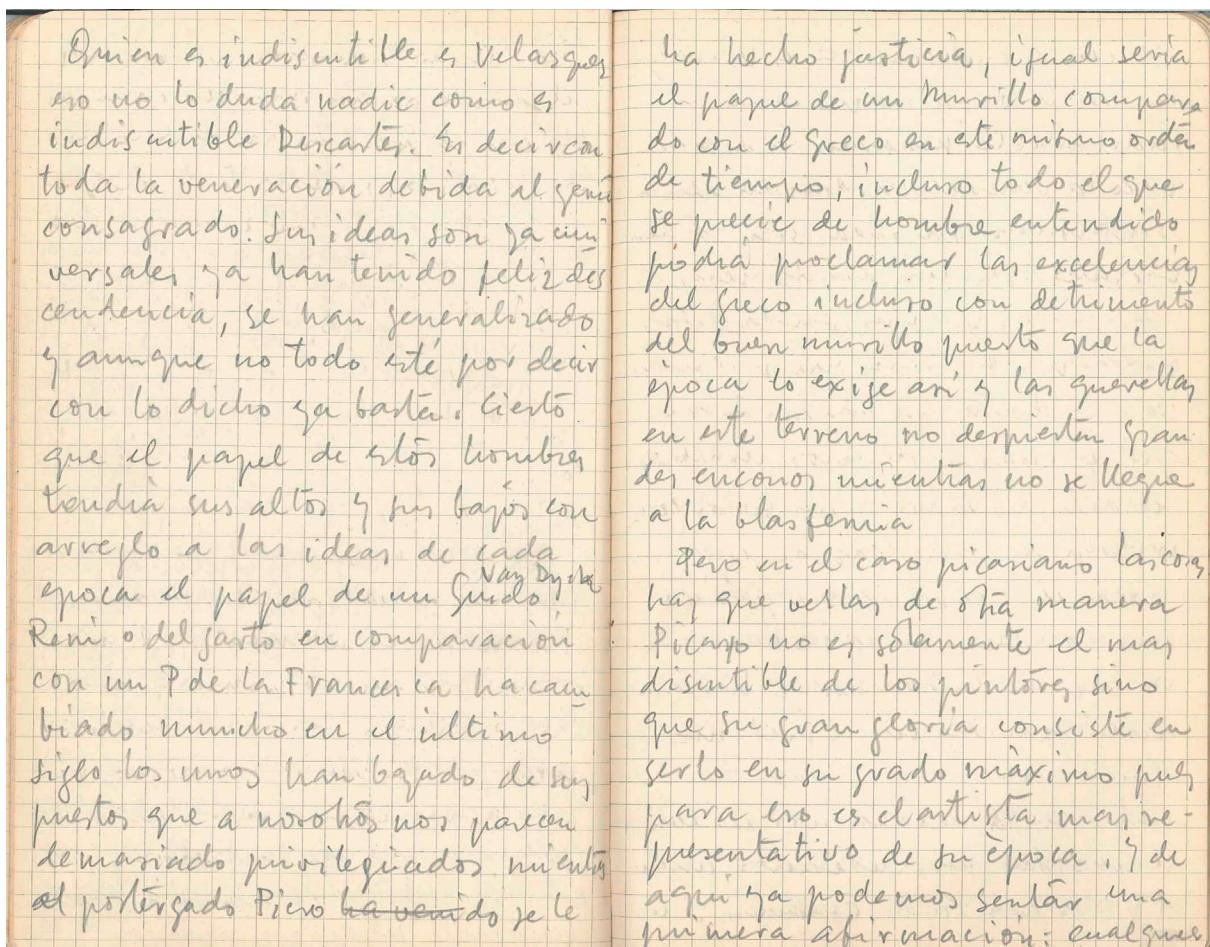 Quien es indiscutible es Velasquez
eso no lo duda nadie como es
indiscutible Descartes. Es decir con
toda la veneración debida al genio
consagrado. Sus ideas son ya uni
versales ya han tenido feliz des
cendencia, se han generalizado
y aunque no todo esté por decir
con lo dicho ya basta. Cierto
que el papel de estos hombres
tendrá sus altos y sus bajos con
arreglo a las ideas de cada
Van Dyck
epoca el papel de un Guido
Reni o del Sarto en comparación
con un P de la Francesca ha cam
biado mucho en el último
siglo los unos han bajado de sus
puestos que a nosotros nos parecen
demasiado privilegiados mientras
al postergado Piero ha venido se le
ha hecho justicia, igual sería
el papel de un Murillo compara
do con el Greco en este mismo orden
de tiempo, incluso todo el que
se precie de hombre entendido
podrá proclamar las excelencias
del Greco incluso con detrimento
del buen murillo puesto que la
época lo exige así y las querellas
en este terreno no despierten gran
des enconos mientras no se llegue
a la blasfemia
Pero en el caso picasiano las cosas
hay que verlas de otra manera
Picasso no es solamente el mas
discutible de los pintores sino
que su gran gloria consiste en
serlo en su grado máximo pues
para eso es el artista mas re-
presentativo de su época, y de
aquí ya podemos sentar una
primera afirmación: cualquier